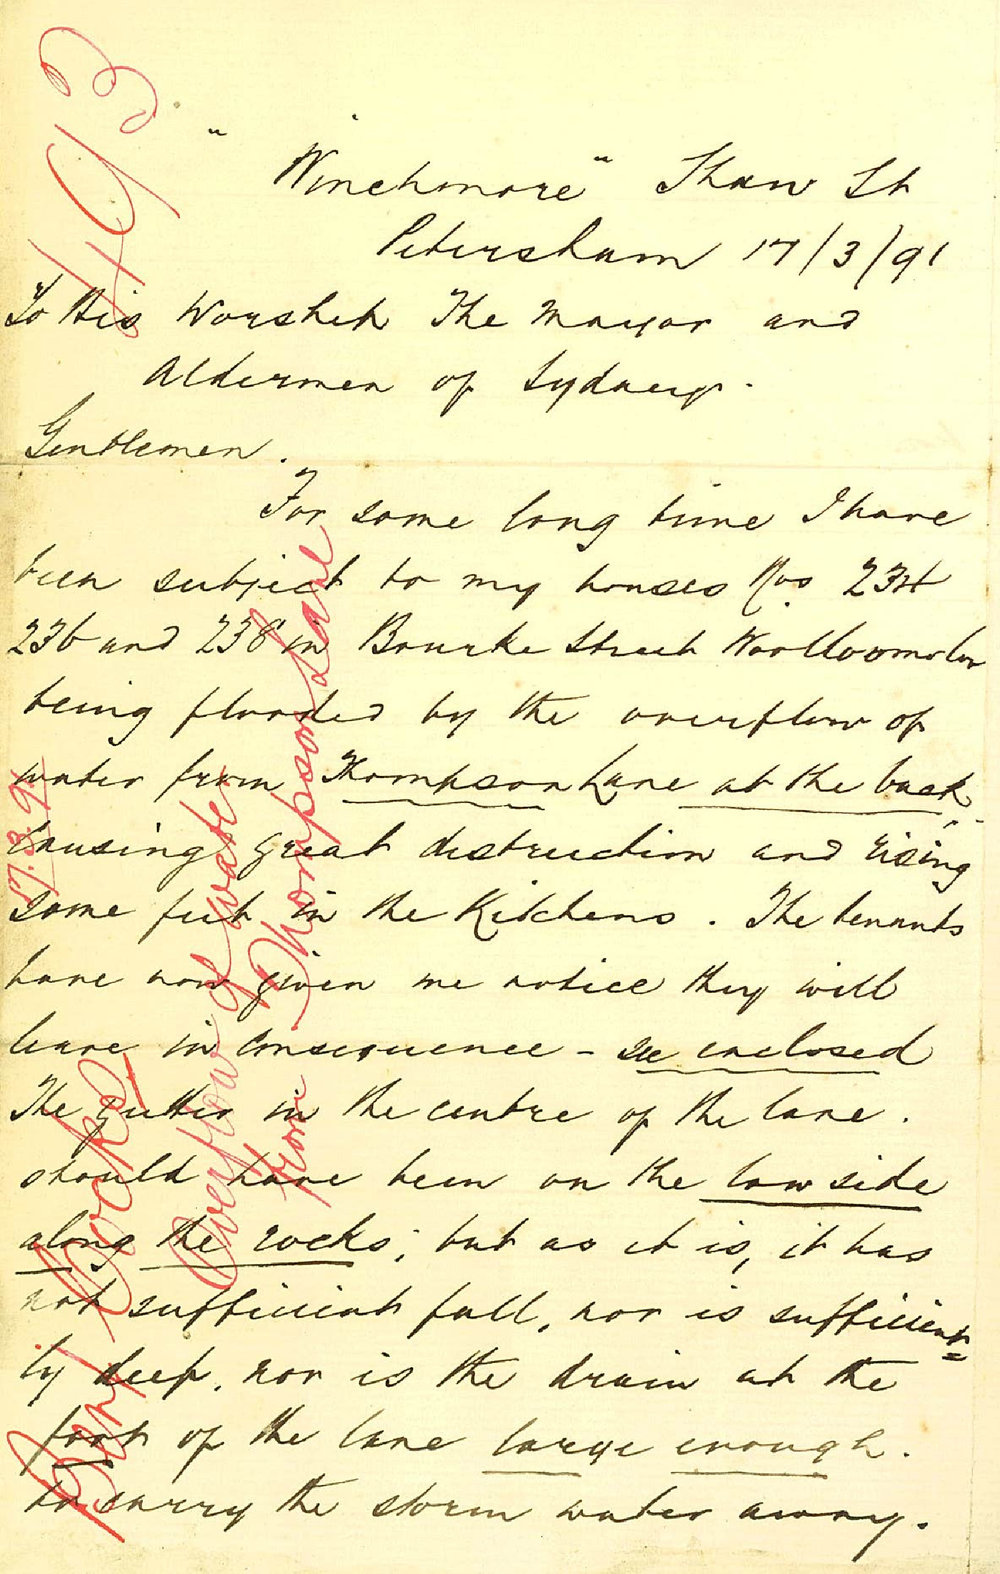 "Winchmore" Shaw St
Petersham 17/3/91
To His Worship The Mayor and
Aldermen of Sydney.
Gentlemen.
For some long time I have
been subject to my houses Nos 234
236 and 238 in Bourke Street Woolloomoloo
being flooded by the overflow of
water from Thompson Lane at the back
causing great destruction and rising
some feet in the Kitchens. The tenants
have now given me notice they will
leave in consequence - see enclosed
The gutter in the centre of the lane.
should have been on the low side
along the rocks; but as it is, it has
not sufficient fall, nor is sufficient=
ly deep, nor is the drain at the
foot of the lane large enough.
to carry the storm water away.
493
17.3.91
Benj Cocks
Overflow of water
from Thompson Lane